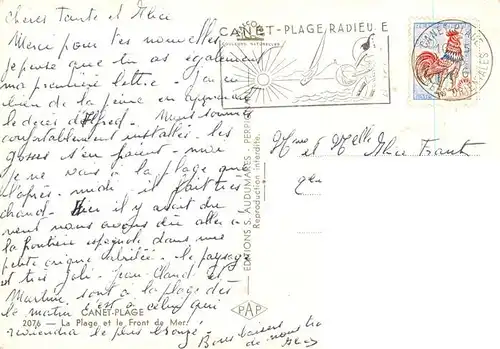 Chères Tante et Alice
Merci pour les nouvelles
je pense que tu as également
ma première lettre. J'ai eu
bien de la peine en apprenant
le décès d'Alfred. Nous sommes
confortablement installés. les
gosses s'en paient - moi
je ne vais à la plage que
l'après-midi, il fait très
chaud. Hier il y avait du
vent nous avons dû aller à
la frontière espagnole dans une
petite crique abritée. le paysage
est très joli. Jean-Claud. et
Martine sont à la plage dès
le matin c'est à celui qui
reviendra le plus bronzé.
Bons baisers
de nous trois
CANET-PLAGE
2076 - La Plage et le Front de Mer
CANET-PLAGE RADIEU E
EDITIONS S. AUDUMARES - PERPIGNAN
Reproduction interdite.
PAP
CANET-PLAGE
Mme et Melle Alice